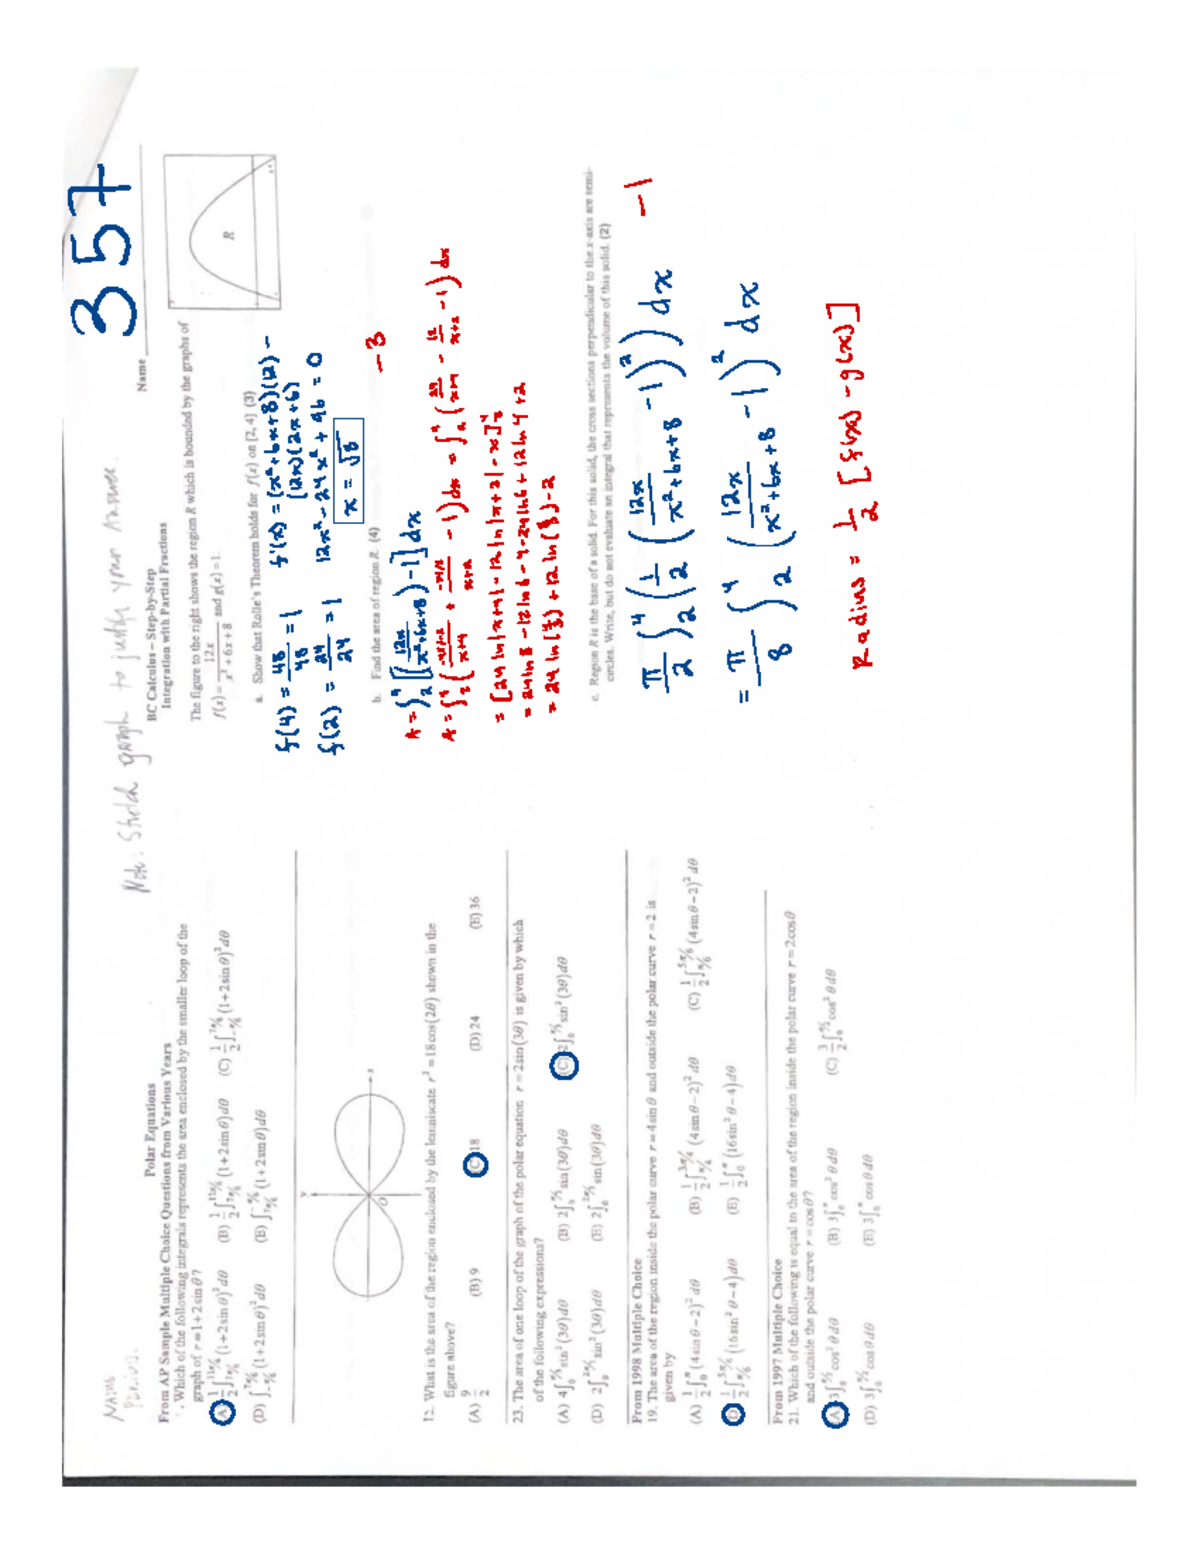 NAME
PERIOD.
Note: Sketch graph to justify your answer.
Polar Equations
From AP Sample Multiple Choice Questions from Various Years
. Which of the following integrals represents the area enclosed by the smaller loop of the
graph of r=1+2sinθ?
(A) 1/2 ∫_{7π/6}^{11π/6} (1+2sinθ)² dθ (B) 1/2 ∫_{7π/6}^{11π/6} (1+2sinθ)dθ (C) 1/2 ∫_{-π/6}^{7π/6} (1+2sinθ)² dθ
(D) ∫_{-π/6}^{7π/6} (1+2sinθ)² dθ (E) ∫_{7π/6}^{-π/6} (1+2sinθ)dθ
y
x
O
12. What is the area of the region enclosed by the lemniscate r²=18cos(2θ) shown in the
figure above?
(A) 9/2 (B) 9 (C) 18 (D) 24 (E) 36
23. The area of one loop of the graph of the polar equation r=2sin(3θ) is given by which
of the following expressions?
(A) 4∫_0^{π/3} sin²(3θ)dθ (B) 2∫_0^{π/3} sin(3θ)dθ (C) 2∫_0^{π/3} sin²(3θ)dθ
(D) 2∫_0^{2π/3} sin²(3θ)dθ (E) 2∫_0^{2π/3} sin(3θ)dθ
From 1998 Multiple Choice
19. The area of the region inside the polar curve r=4sinθ and outside the polar curve r=2 is
given by
(A) 1/2 ∫_0^π (4sinθ-2)² dθ (B) 1/2 ∫_{π/4}^{3π/4} (4sinθ-2)² dθ (C) 1/2 ∫_{π/6}^{5π/6} (4sinθ-2)² dθ
D 1/2 ∫_{π/6}^{5π/6} (16sin²θ-4)dθ (E) 1/2 ∫_0^π (16sin²θ-4)dθ
From 1997 Multiple Choice
21. Which of the following is equal to the area of the region inside the polar curve r=2cosθ
and outside the polar curve r=cosθ?
(A) 3∫_0^{π/2} cos²θ dθ (B) 3∫_0^π cos²θ dθ (C) 3/2 ∫_0^{π/2} cos²θ dθ
(D) 3∫_0^{π/2} cosθ dθ (E) 3∫_0^π cosθ dθ
357
Name
BC Calculus – Step-by-Step
Integration with Partial Fractions
The figure to the right shows the region R which is bounded by the graphs of
f(x) = 12x/(x²+6x+8) and g(x)=1.
R
a. Show that Rolle's Theorem holds for f(x) on [2,4] (3)
f(4) = 48/48 = 1 f'(x) = (x²+6x+8)(12) -
(12x)(2x+6)
f(2) = 24/24 = 1 12x² - 24x² + 96 = 0
x = √8
b. Find the area of region R. (4)
-3
A = ∫_2^4 [(12x/(x²+6x+8)) - 1] dx
-1)dx = ∫_2^4 (24/(x+4) - 12/(x+2) - 1) dx
= [24 ln|x+4| - 12 ln|x+2| - x]_2^4
= 24ln8 - 12ln6 - 4 - 24ln6 + 12ln4 + 2
= 24 ln(4/3) + 12 ln(2/3) - 2
c. Region R is the base of a solid. For this solid, the cross sections perpendicular to the x-axis are semi-
circles. Write, but do not evaluate an integral that represents the volume of this solid. (2)
-1
π/2 ∫_2^4 (1/2 (12x/(x²+6x+8) - 1)²) dx
= π/8 ∫_2^4 (12x/(x²+6x+8) - 1)² dx
Radius = 1/2 [f(x) - g(x)]